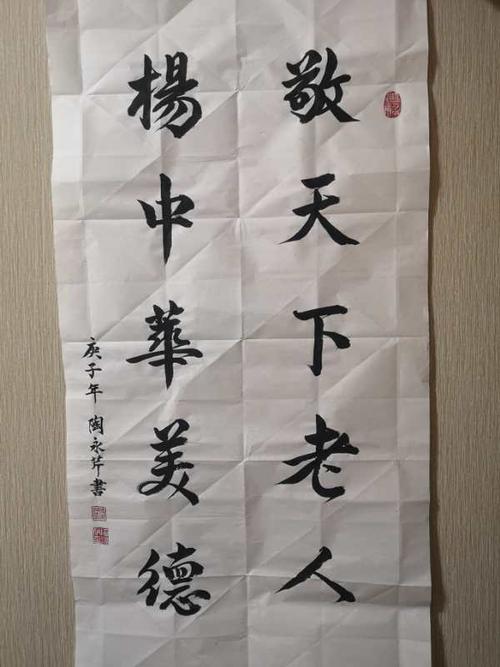 敬天下老人
楊中華美德
庚子年 陶永芹書